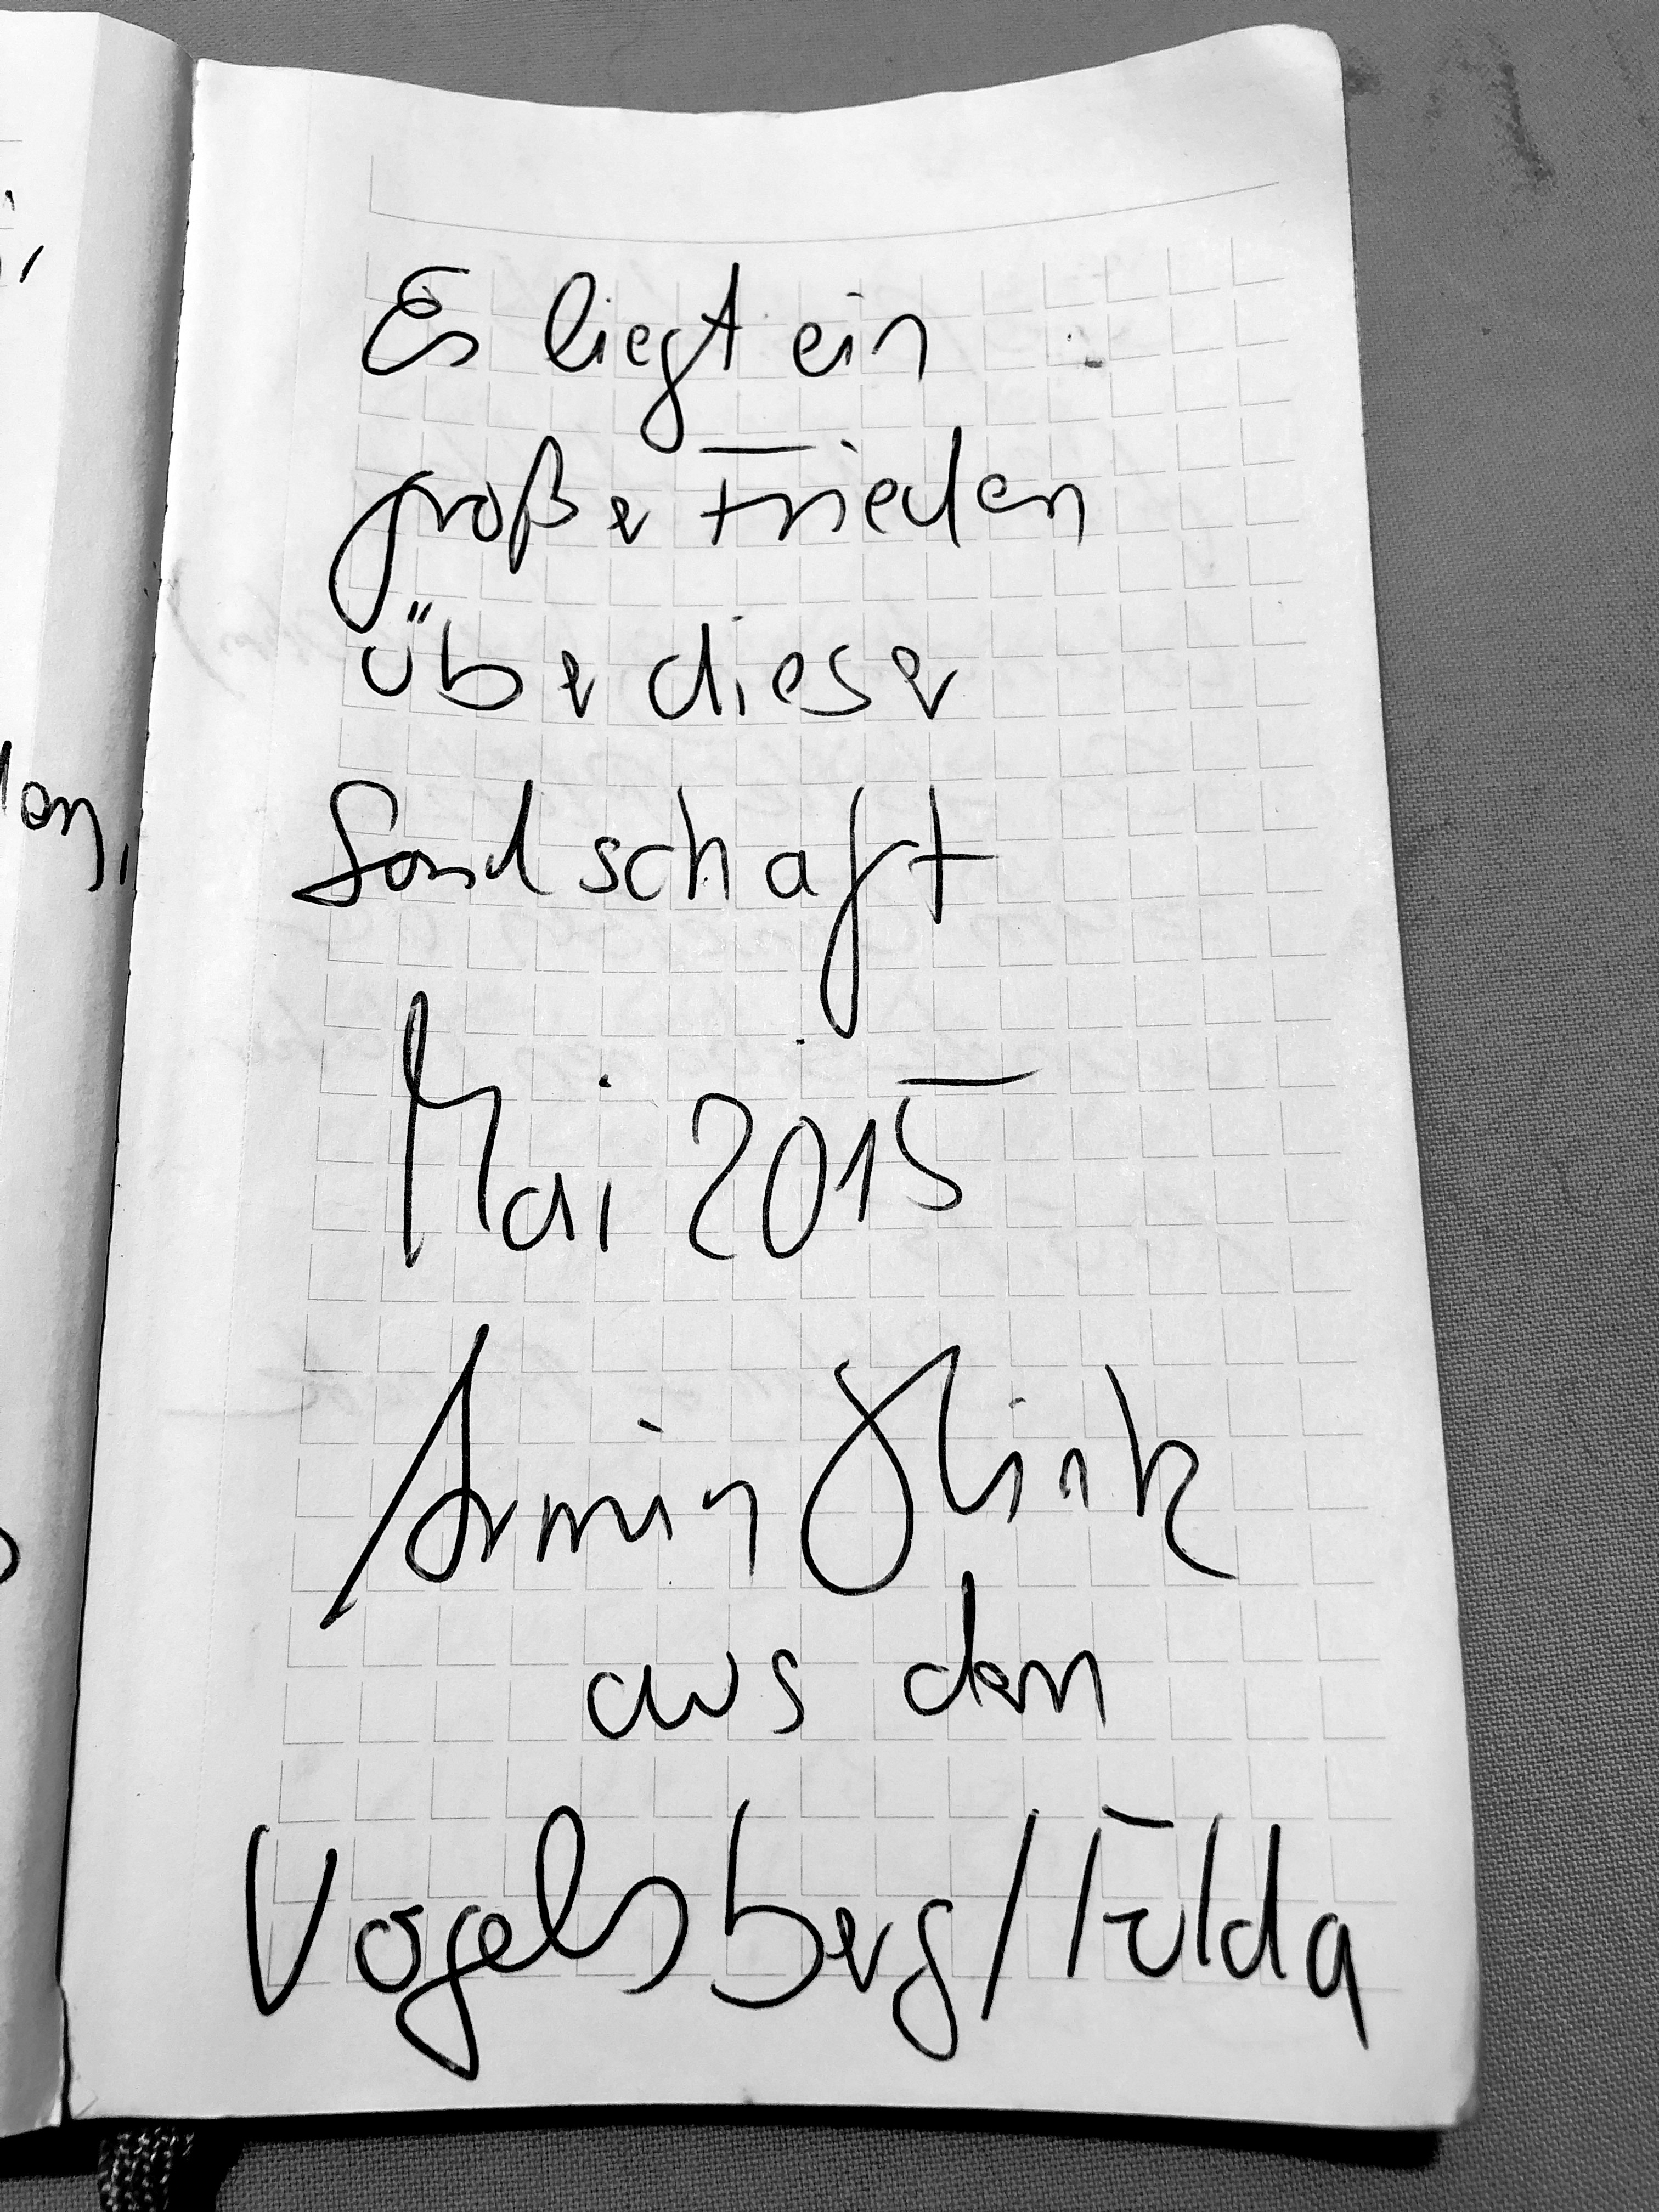 Es liegt ein
großer Frieden
über dieser
Landschaft
Mai 2015
Armin
aus dem
Vogelsberg/Fulda